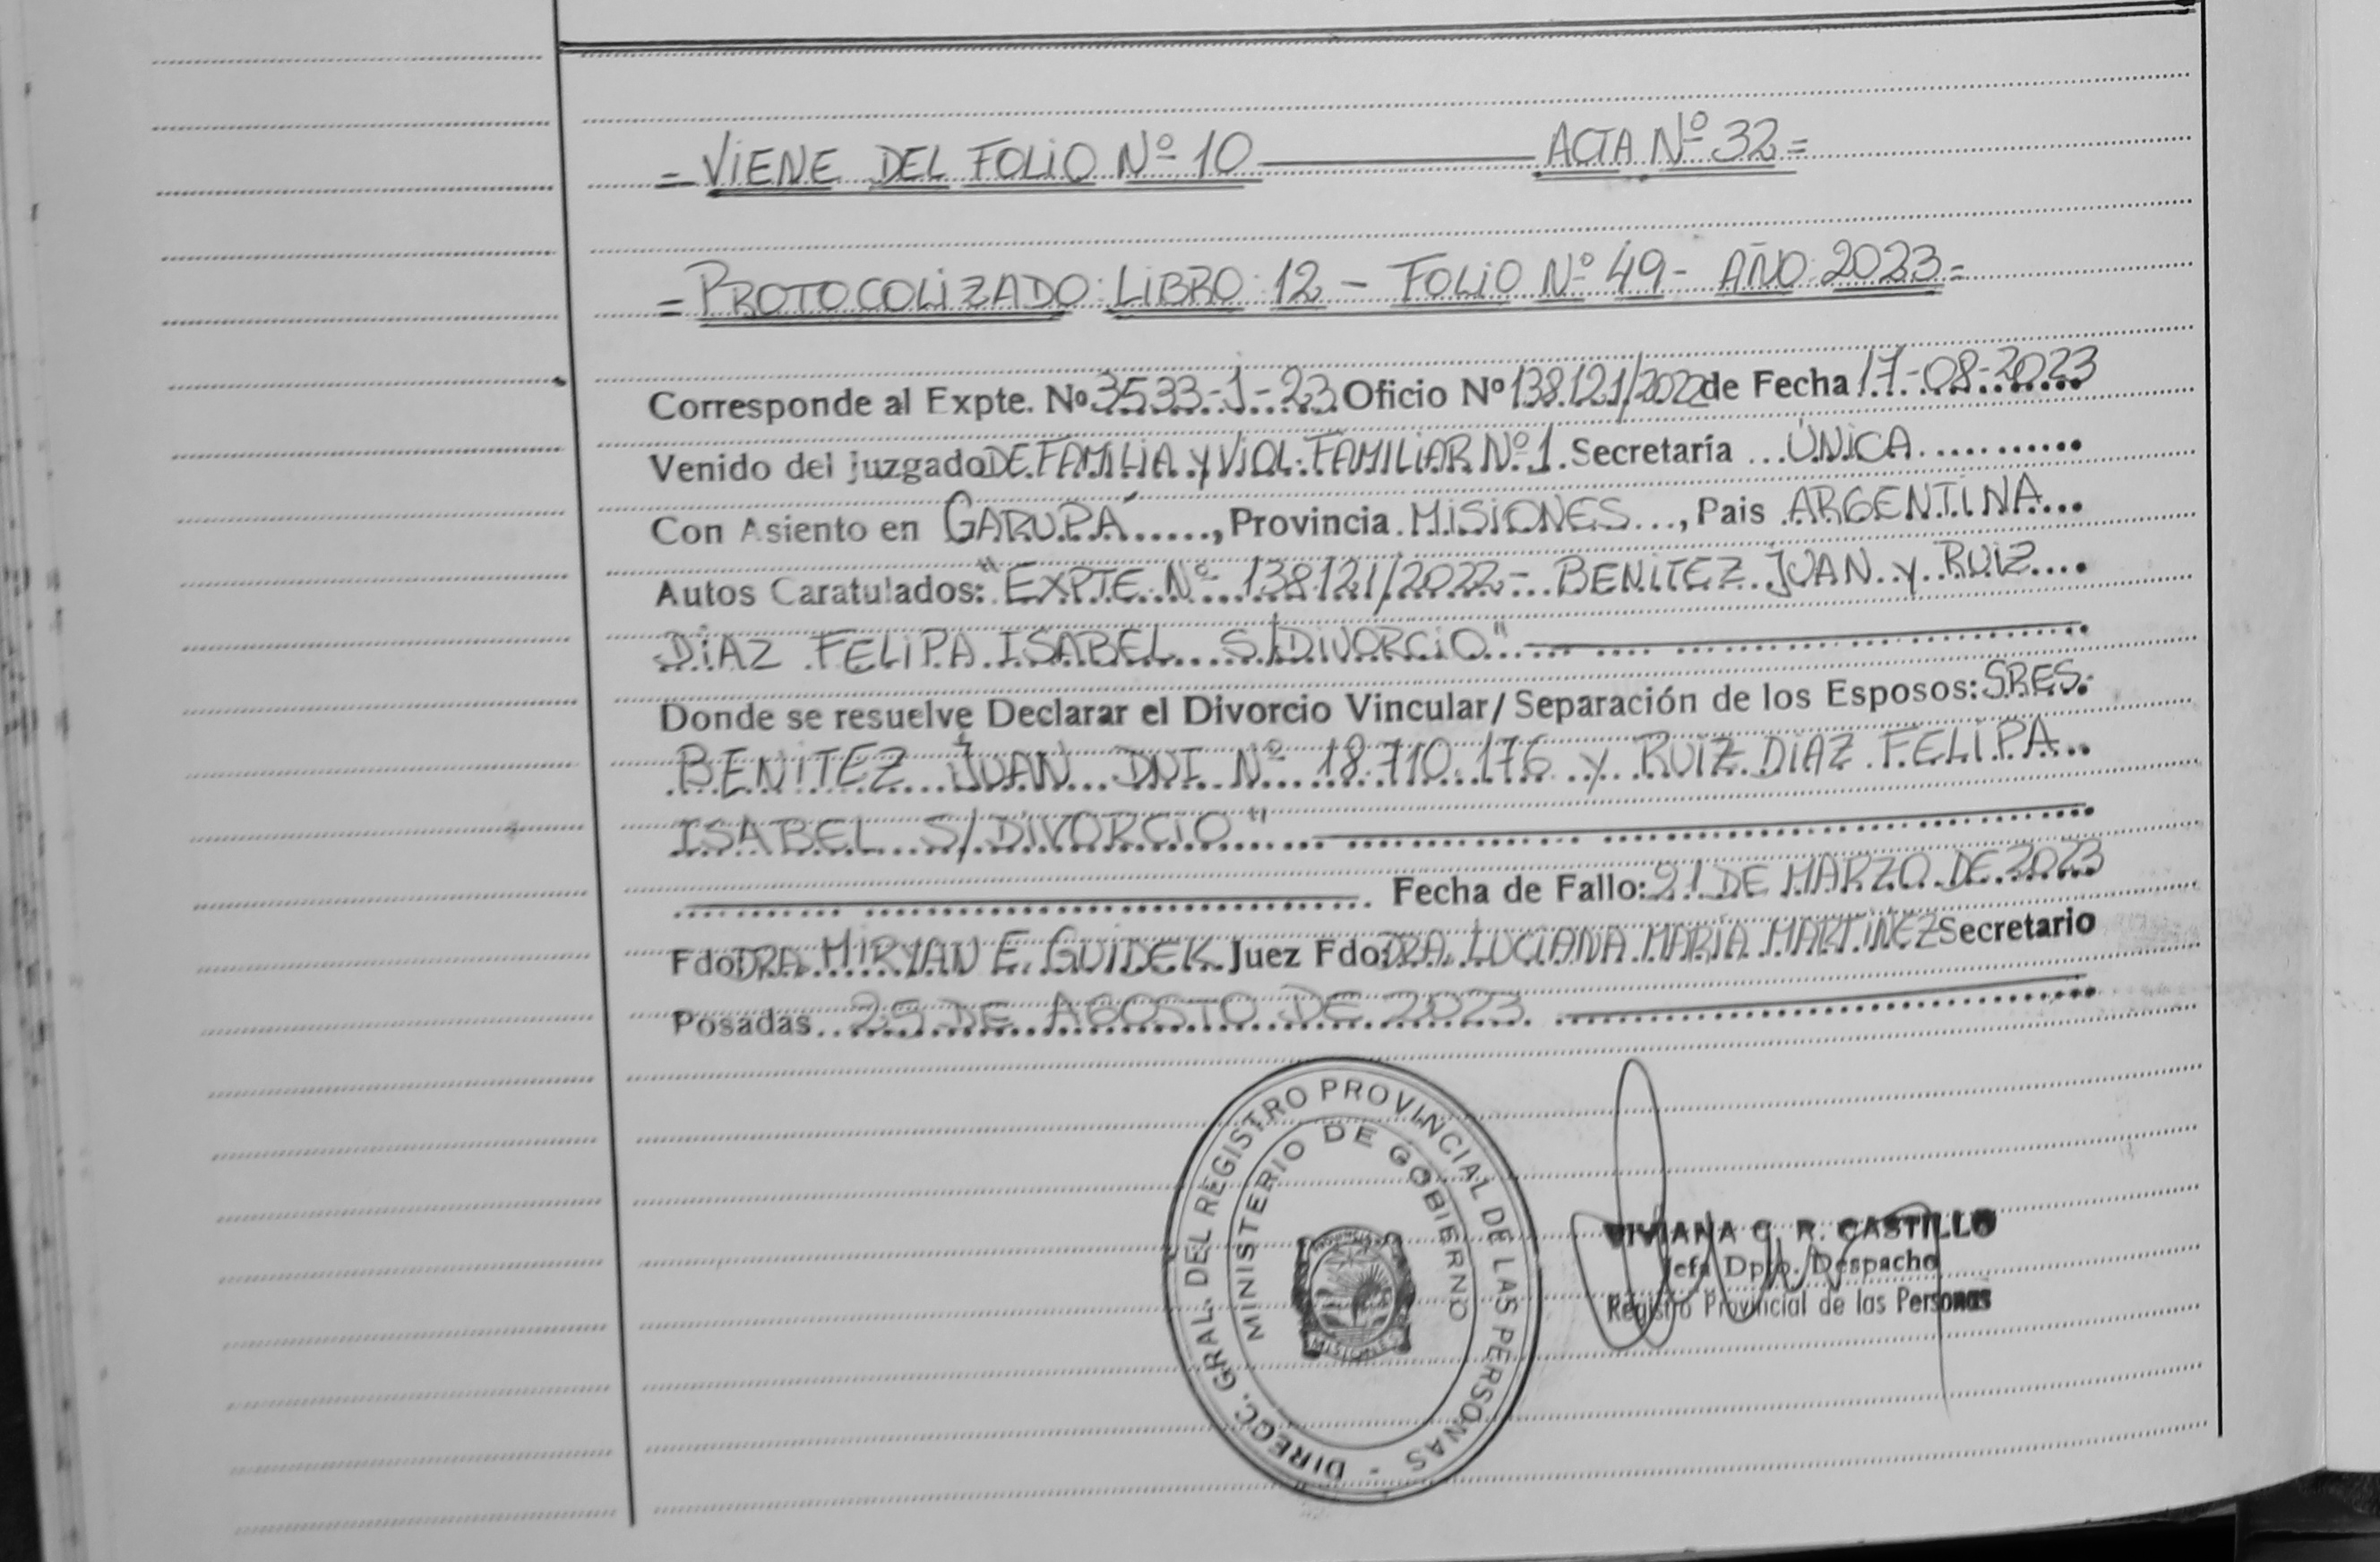 = VIENE DEL FOLIO Nº 10 ———— ACTA Nº 32 =
= PROTOCOLIZADO: LIBRO: 12 - FOLIO Nº 49 - AÑO: 2023 =
Corresponde al Expte. Nº 3533-J-23 Oficio Nº 138121/2022 de Fecha 17-08-2023
Venido del Juzgado DE FAMILIA y VIOL. FAMILIAR Nº 1. Secretaría ... ÚNICA ..........
Con Asiento en GARUPÁ ......, Provincia MISIONES ..., Pais ARGENTINA ...
Autos Caratulados: "EXPTE. Nº 138121/2022 - BENITEZ JUAN y RUIZ ....
DIAZ FELIPA ISABEL S/DIVORCIO"
Donde se resuelve Declarar el Divorcio Vincular/ Separación de los Esposos: SRES.
BENITEZ JUAN DNI Nº 18.710.176 y RUIZ DIAZ FELIPA
ISABEL S/DIVORCIO"
Fecha de Fallo: 21 DE MARZO DE 2023
Fdo: DRA. MIRYAN E. GUIDEK Juez Fdo: DRA. LUCIANA MARÍA MARTINEZ Secretario
Posadas, 29 DE AGOSTO DE 2023
DIRECC. GRAL. DEL REGISTRO PROVINCIAL DE LAS PERSONAS -
MINISTERIO DE GOBIERNO
MISIONES
VIVIANA C. R. CASTILLO
Jefa Dpto. Despacho
Registro Provincial de las Personas